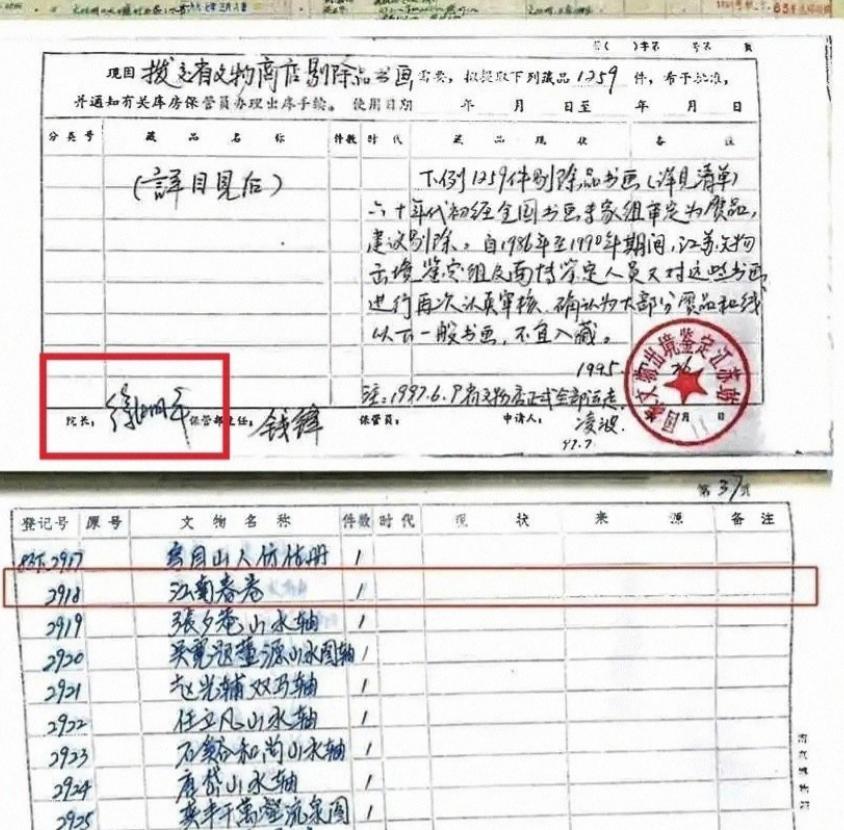 现因 拨交省文物商店剔除品书画 需要，拟提取下列藏品 1259 件，希予批准，
并通知有关库房保管员办理出库手续。 使用日期 年 月 日至 年 月 日
分类号 藏品名称 件数 时代 藏品现状 备注
（詳目見后）
下列1259件剔除品书画（详见清单）
六十年代初经全国书画专家组审定为赝品，
建议剔除。自1986年至1990年期间，江苏文物
出境鉴定组及
鉴定人员又对这些书画
进行再次认真审核，确认为大部分赝品和线
以下一般书画，不宜入藏。
1995.
注：1997.6.9省文物店正式全部运走
凌波
97.7.
院长： 徐湖平 保管部主任： 钱锋 保管员： 申请人： 月 日
文物出境鉴定江苏站
第37页
登记号 原号 文物名称 件数 时代 现状 来源 备注
835.2917 1
2918 江南春卷 1
2919 張夕菴山水轴 1
2920 吴寛题董源山水图轴 1
2921 赵光輔双马轴 1
2922 任立凡山水轴 1
2923 石溪和尚山水轴 1
2924 唐岱山水轴 1
2925 千萬壑流泉图 1